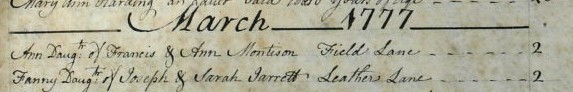 Mary Ann Harding an adult said to be 20 Years of Age
March 1777
Ann Daugtr of Francis & Ann Morrison Field Lane - - - - - 2
Fanny Daugtr of Joseph & Sarah Jarrett Leather Lane - - - - 2